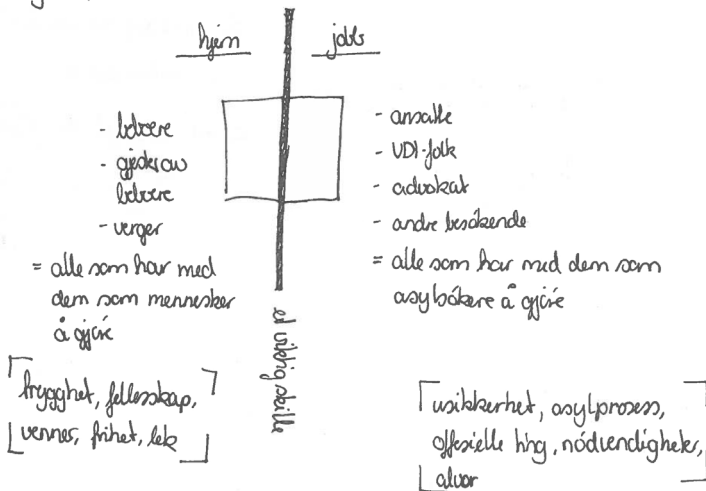 hjem
jobb
- beboere
- gjester av
beboere
- verger
= alle som har med
dem som mennesker
å gjöre
trygghet, fellesskap,
venner, frihet, lek
et viktig skille
- ansatte
- UDI-folk
- advokat
- andre besökende
= alle som har med dem som
asylsökere å gjöre
usikkerhet, asylprosess,
offesielle ting, nödvendigheter,
alvor